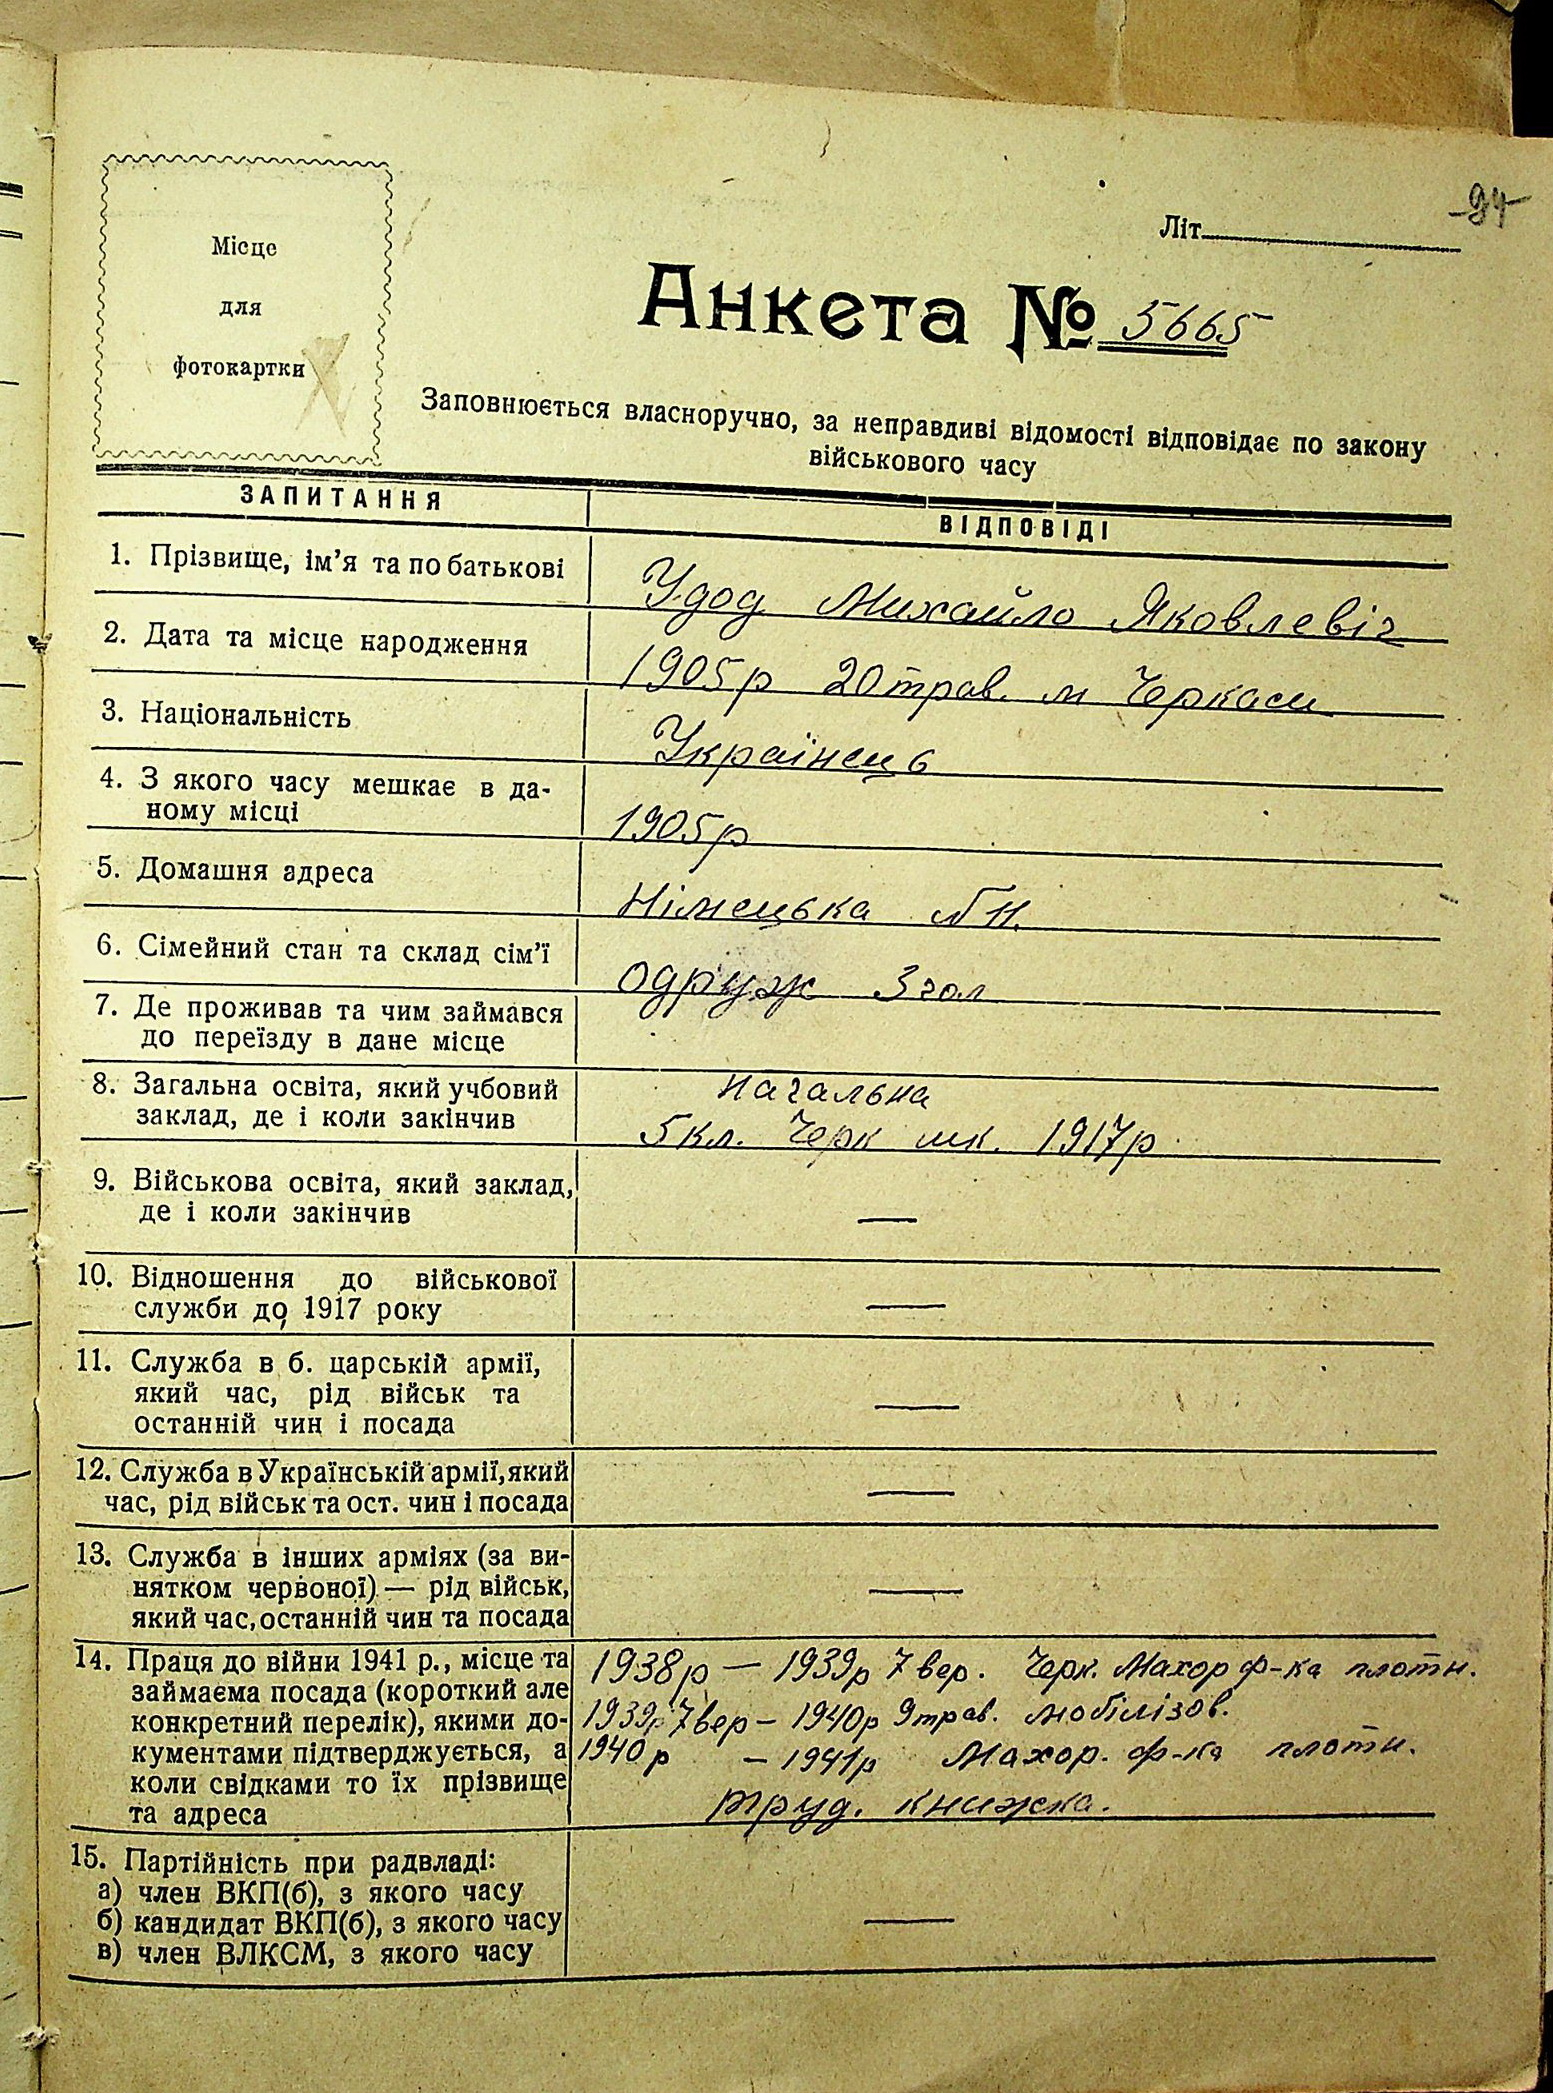 94
Літ
Місце
для
фотокартки
Анкета № 5665
Заповнюється власноручно, за неправдиві відомості відповідає по закону
військового часу
ЗАПИТАННЯ
ВІДПОВІДІ
1. Прізвище, ім'я та по батькові
Удод Михайло Яковлевіч
2. Дата та місце народження
1905р 20 трав. м Черкаси
3. Національність
Українець
4. З якого часу мешкає в да-
ному місці
1905р
5. Домашня адреса
Німецька
6. Сімейний стан та склад сім'ї
одруж 3 гол
7. Де проживав та чим займався
до переїзду в дане місце
8. Загальна освіта, який учбовий
заклад, де і коли закінчив
начальна
5 кл. Черк шк. 1917р
9. Військова освіта, який заклад,
де і коли закінчив
—
10. Відношення до військової
служби до 1917 року
—
11. Служба в б. царській армії,
який час, рід військ та
останній чин і посада
—
12. Служба в Українській армії, який
час, рід військ та ост. чин і посада
—
13. Служба в інших арміях (за ви-
нятком червоної) — рід військ,
який час, останній чин та посада
—
14. Праця до війни 1941 р., місце та
займаєма посада (короткий але
конкретний перелік), якими до-
кументами підтверджується, а
коли свідками то їх прізвище
та адреса
1938р — 1939р 7 вер. Черк. Махор ф-ка плотн.
1939р 7 вер — 1940р 9 трав. мобілізов.
1940р — 1941р Махор. ф-ка плотн.
труд. книжка.
15. Партійність при радвладі:
а) член ВКП(б), з якого часу
б) кандидат ВКП(б), з якого часу
в) член ВЛКСМ, з якого часу
—